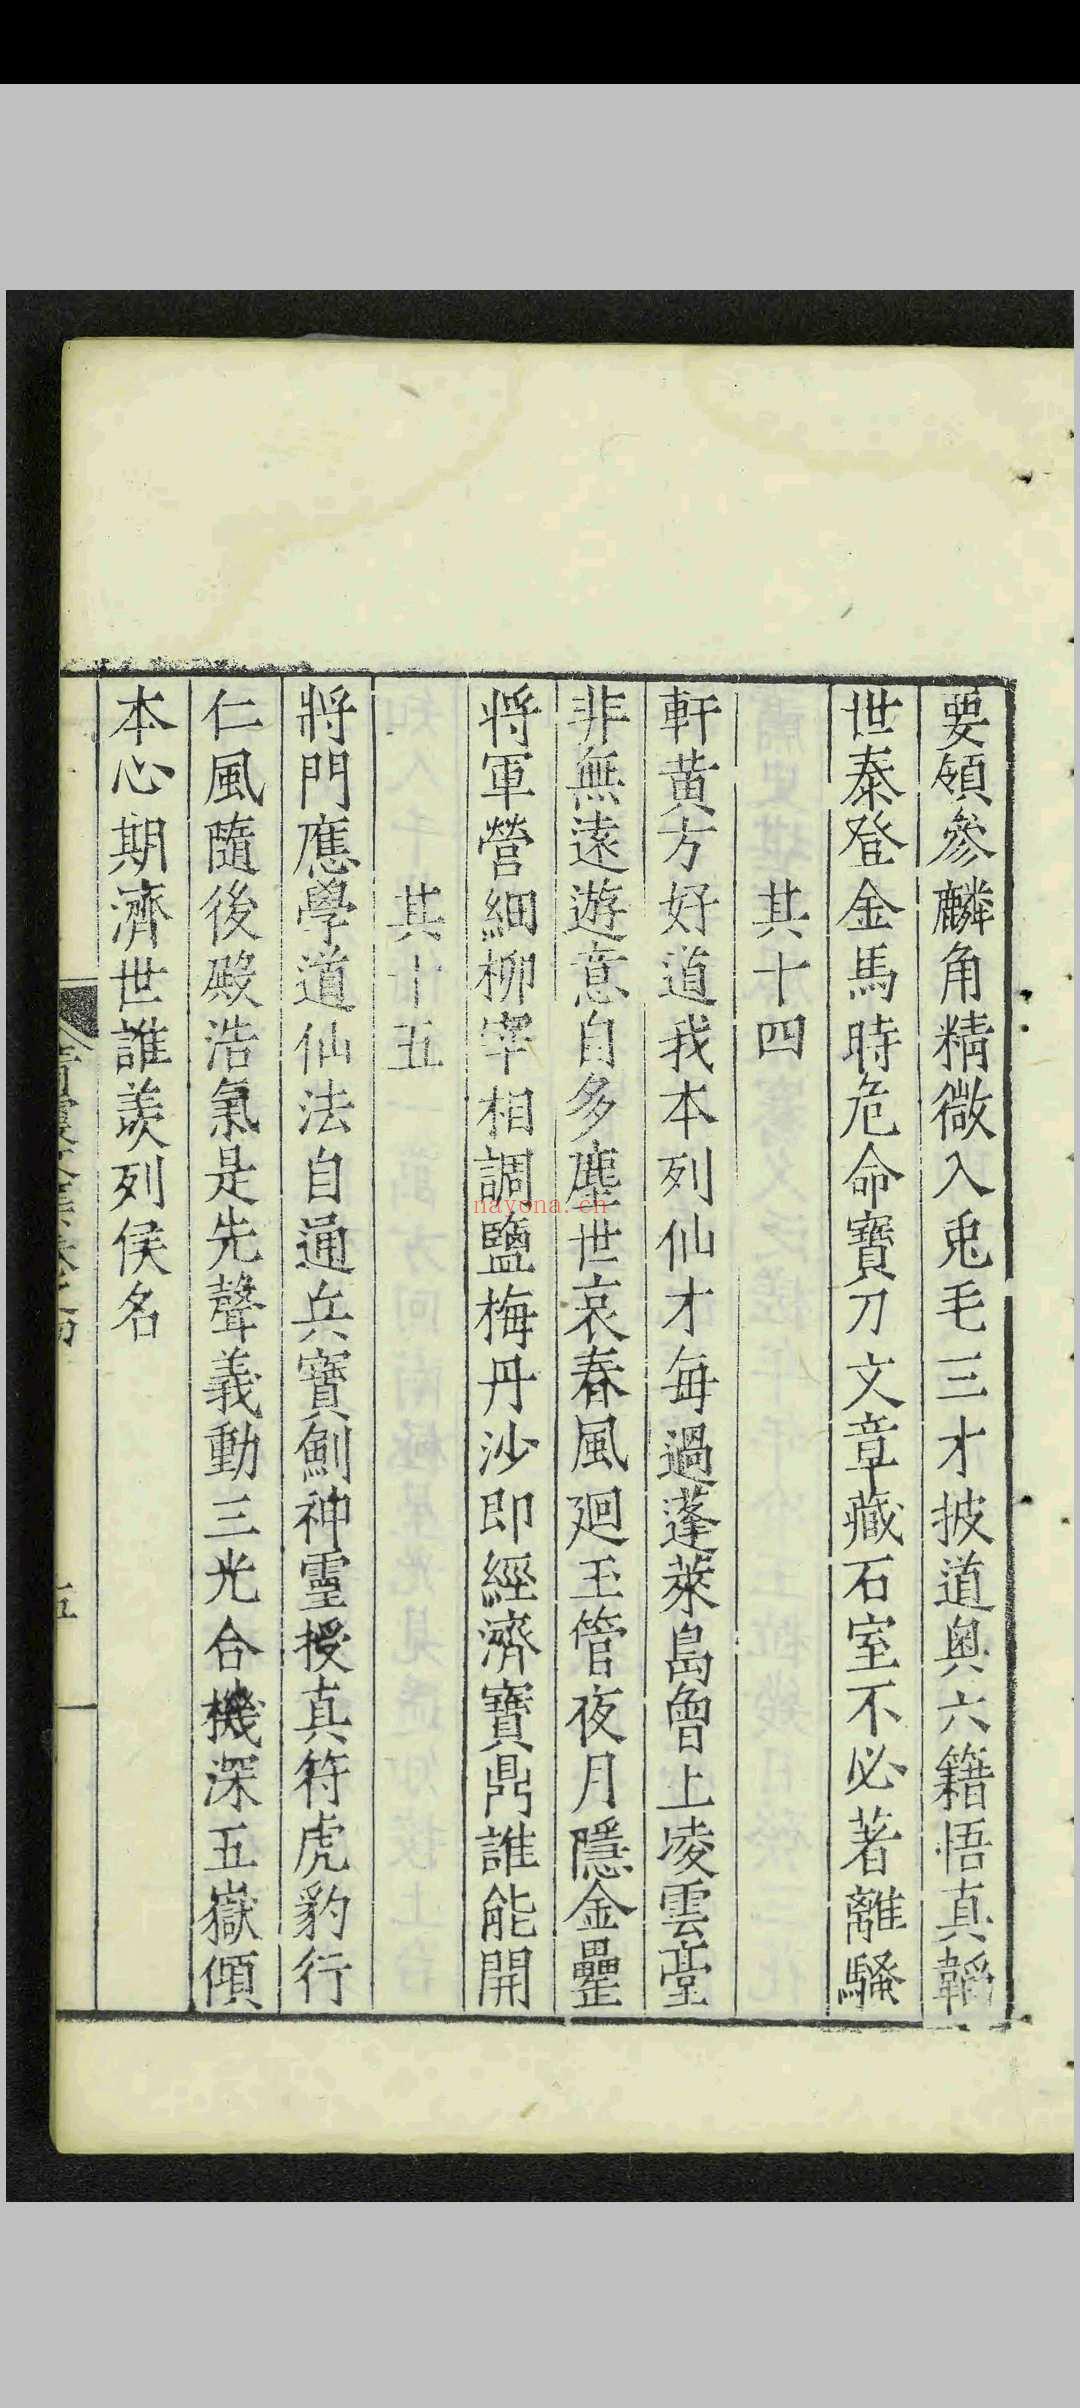 要領參麟角精微入兎毛三才披道奥六籍悟真韜
世泰登金馬時危命寶刀文章藏石室不必著離騷
其十四
軒黄方好道我本列仙才毎過蓬萊島曾上凌雲臺
非無遠遊意自多塵世哀春風廻玉管夜月隱金罍
將軍營細柳宰相調鹽梅丹沙即經濟寶鼎誰能開
其十五
將門應學道仙法自通兵寶劍神靈授真符虎豹行
仁風隨後殿浩氣是先聲義動三光合機深五嶽傾
本心期濟世誰羨列侯名
五
nayona.cn